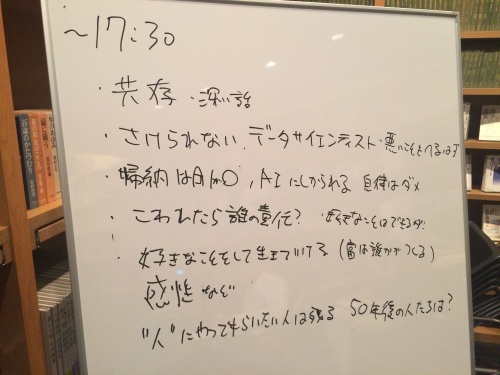 ~17:30
・共存 ・深い話
・さけられない、データサイエンティスト・悪いことをするはず
・帰納はAIの○, AIにしかられる 自律はダメ
・こわれたら誰の責任? ・好きなことはできるが
・好きなことをして生きていける (富は誰かがつくる)
感性など
"人"にやってもらいたい人は残る 50年後の人たちは?